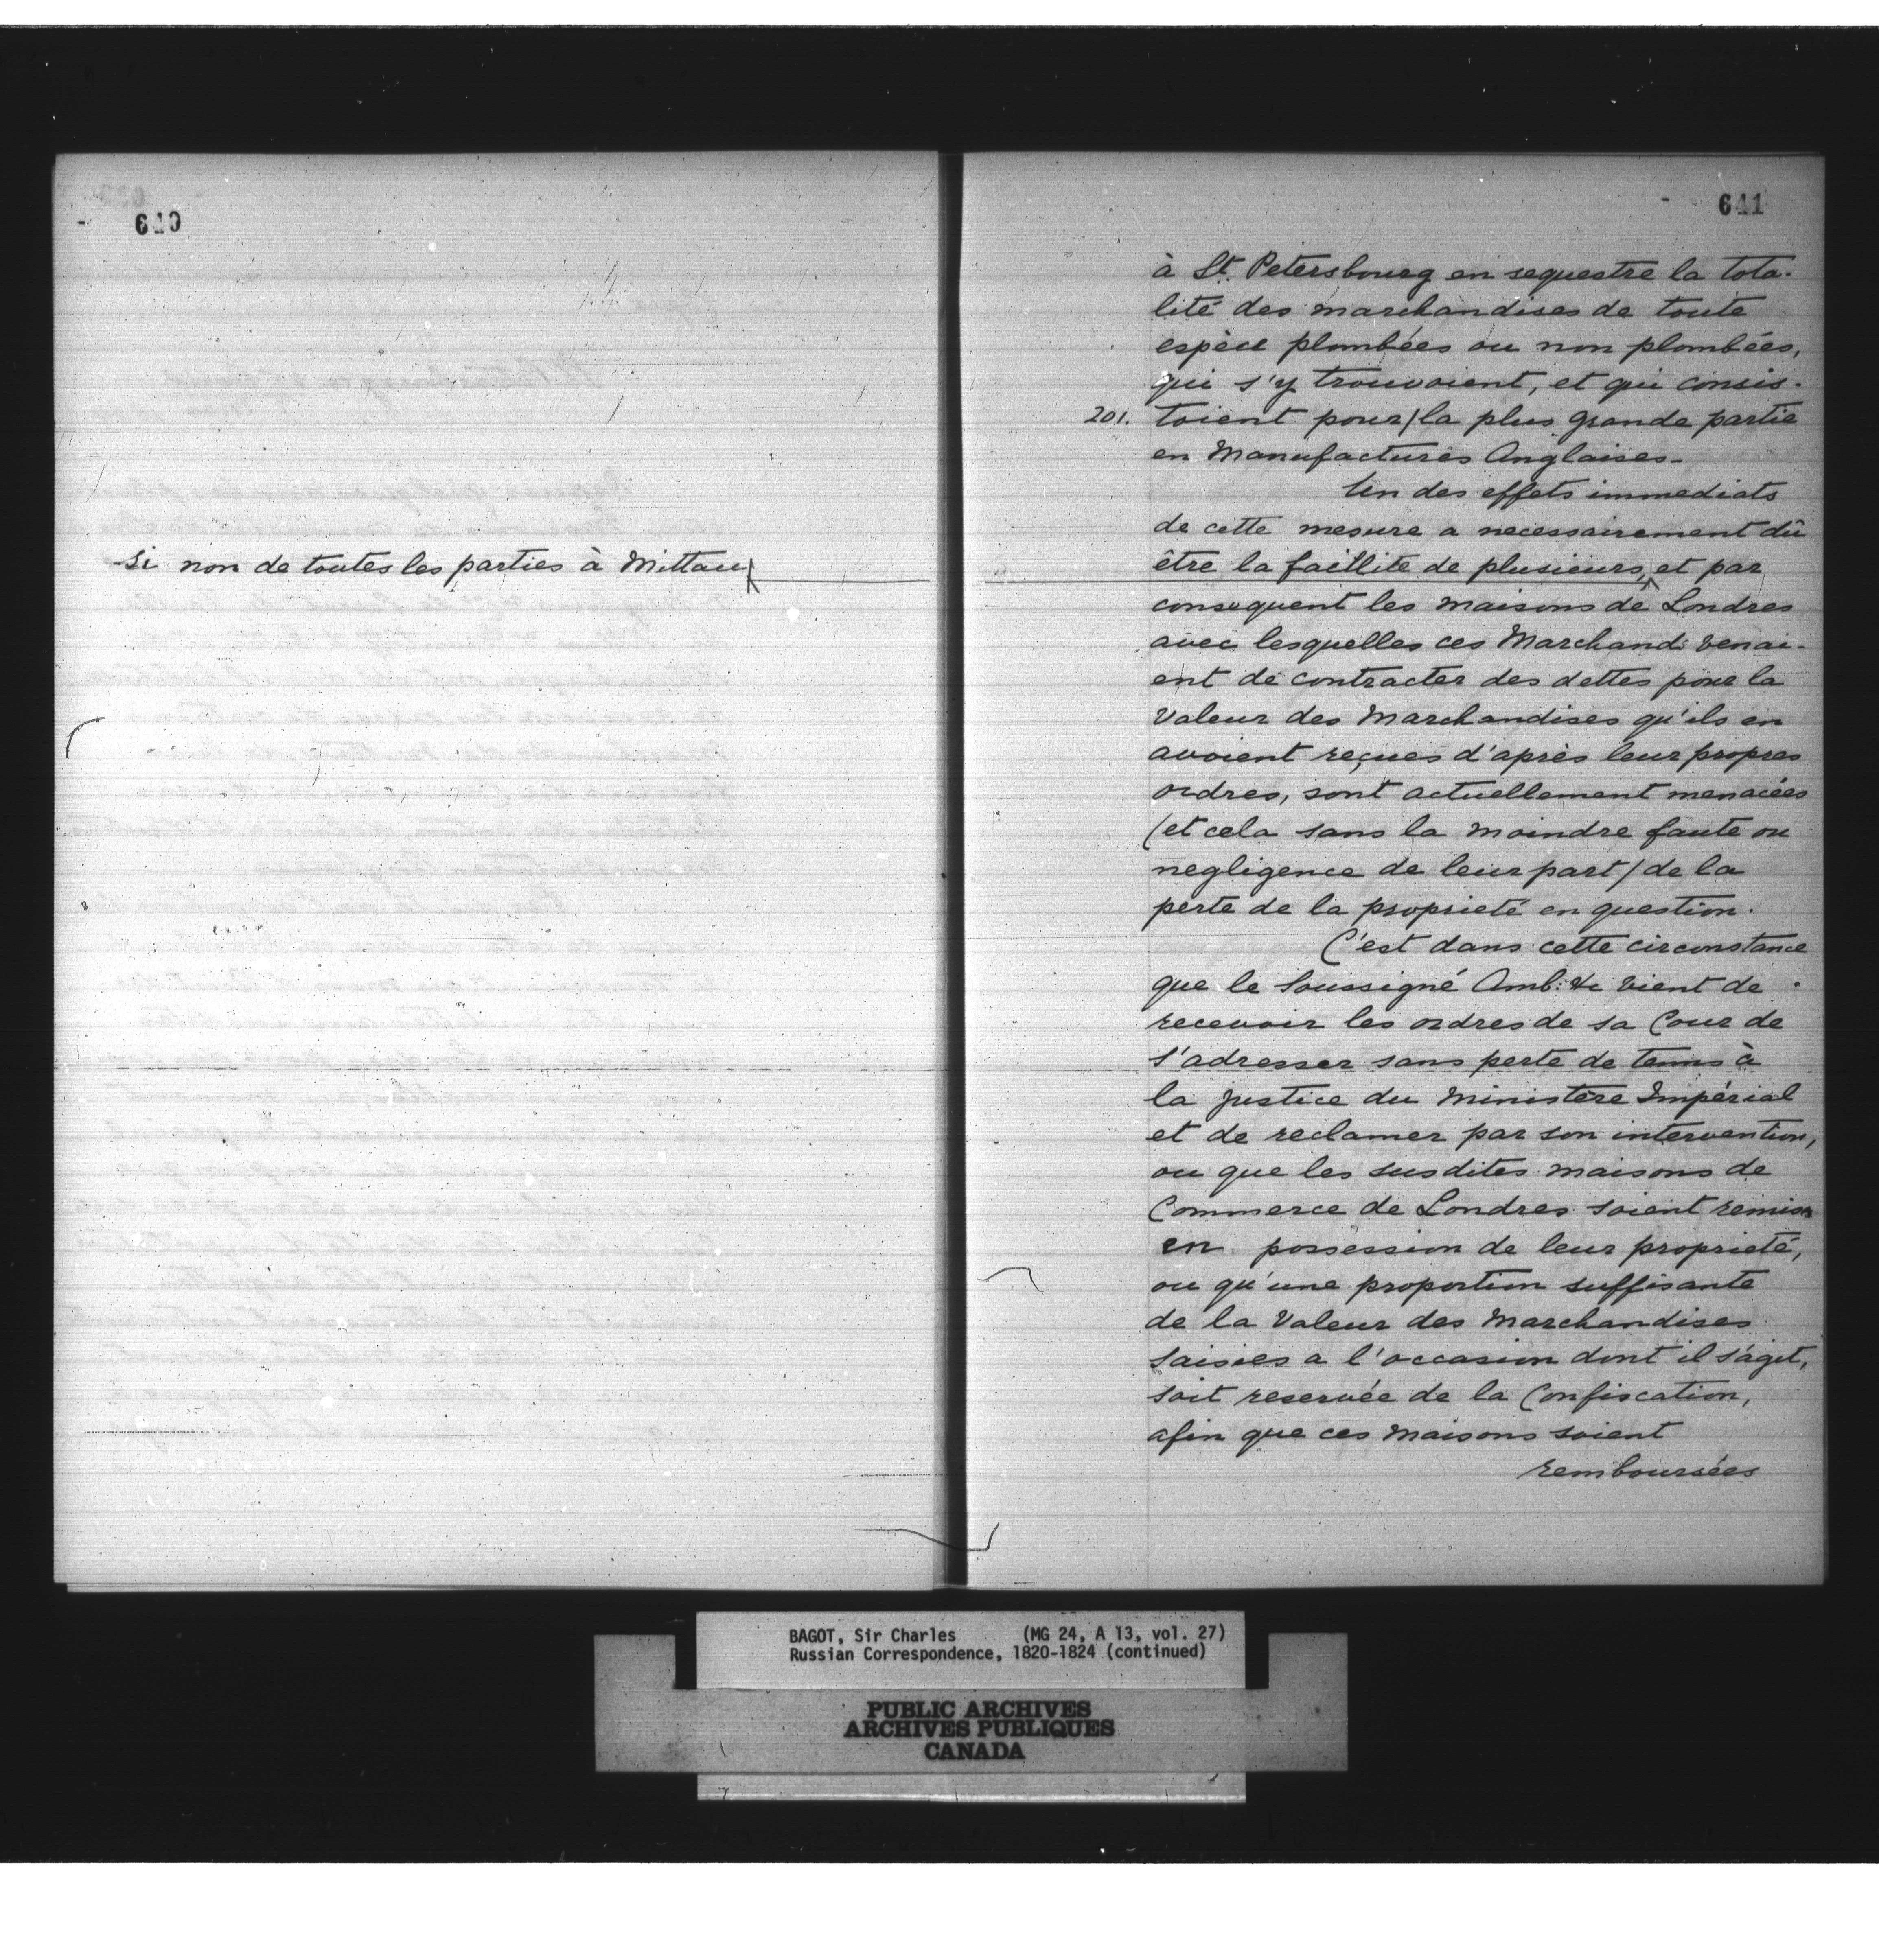 640
si non de toutes les parties à Mittau
641
à St. Petersbourg en sequestre la tota-
lité des marchandises de toute
espèce plombées ou non plombées,
qui s'y trouvoient, et qui consis-
201. toient pour/la plus grande partie
en Manufactures Anglaises-
Un des effets immediats
de cette mesure a necessairement dû
être la faillite de plusieurs, et par
consequent les maisons de Londres
avec lesquelles ces Marchands venai-
ent de contracter des dettes pour la
Valeur des Marchandises qu'ils en
avoient reçues d'après leur propres
ordres, sont actuellement menacées
(et cela sans la moindre faute ou
negligence de leur part/ de la
perte de la proprieté en question.
C'est dans cette circonstance
que le Soussigné Amb: &c vient de
recevoir les ordres de sa Cour de
s'adresser sans perte de tems à
la justice du Ministère Impérial
et de reclamer par son intervention,
ou que les susdites maisons de
Commerce de Londres soient remises
en possession de leur proprieté,
ou qu'une proportion suffisante
de la Valeur des Marchandises
saisies a l'occasion dont il s'agit,
soit reservée de la Confiscation,
afin que ces Maisons soient
remboursées
BAGOT, Sir Charles (MG 24, A 13, vol. 27)
Russian Correspondence, 1820-1824 (continued)
PUBLIC ARCHIVES
ARCHIVES PUBLIQUES
CANADA